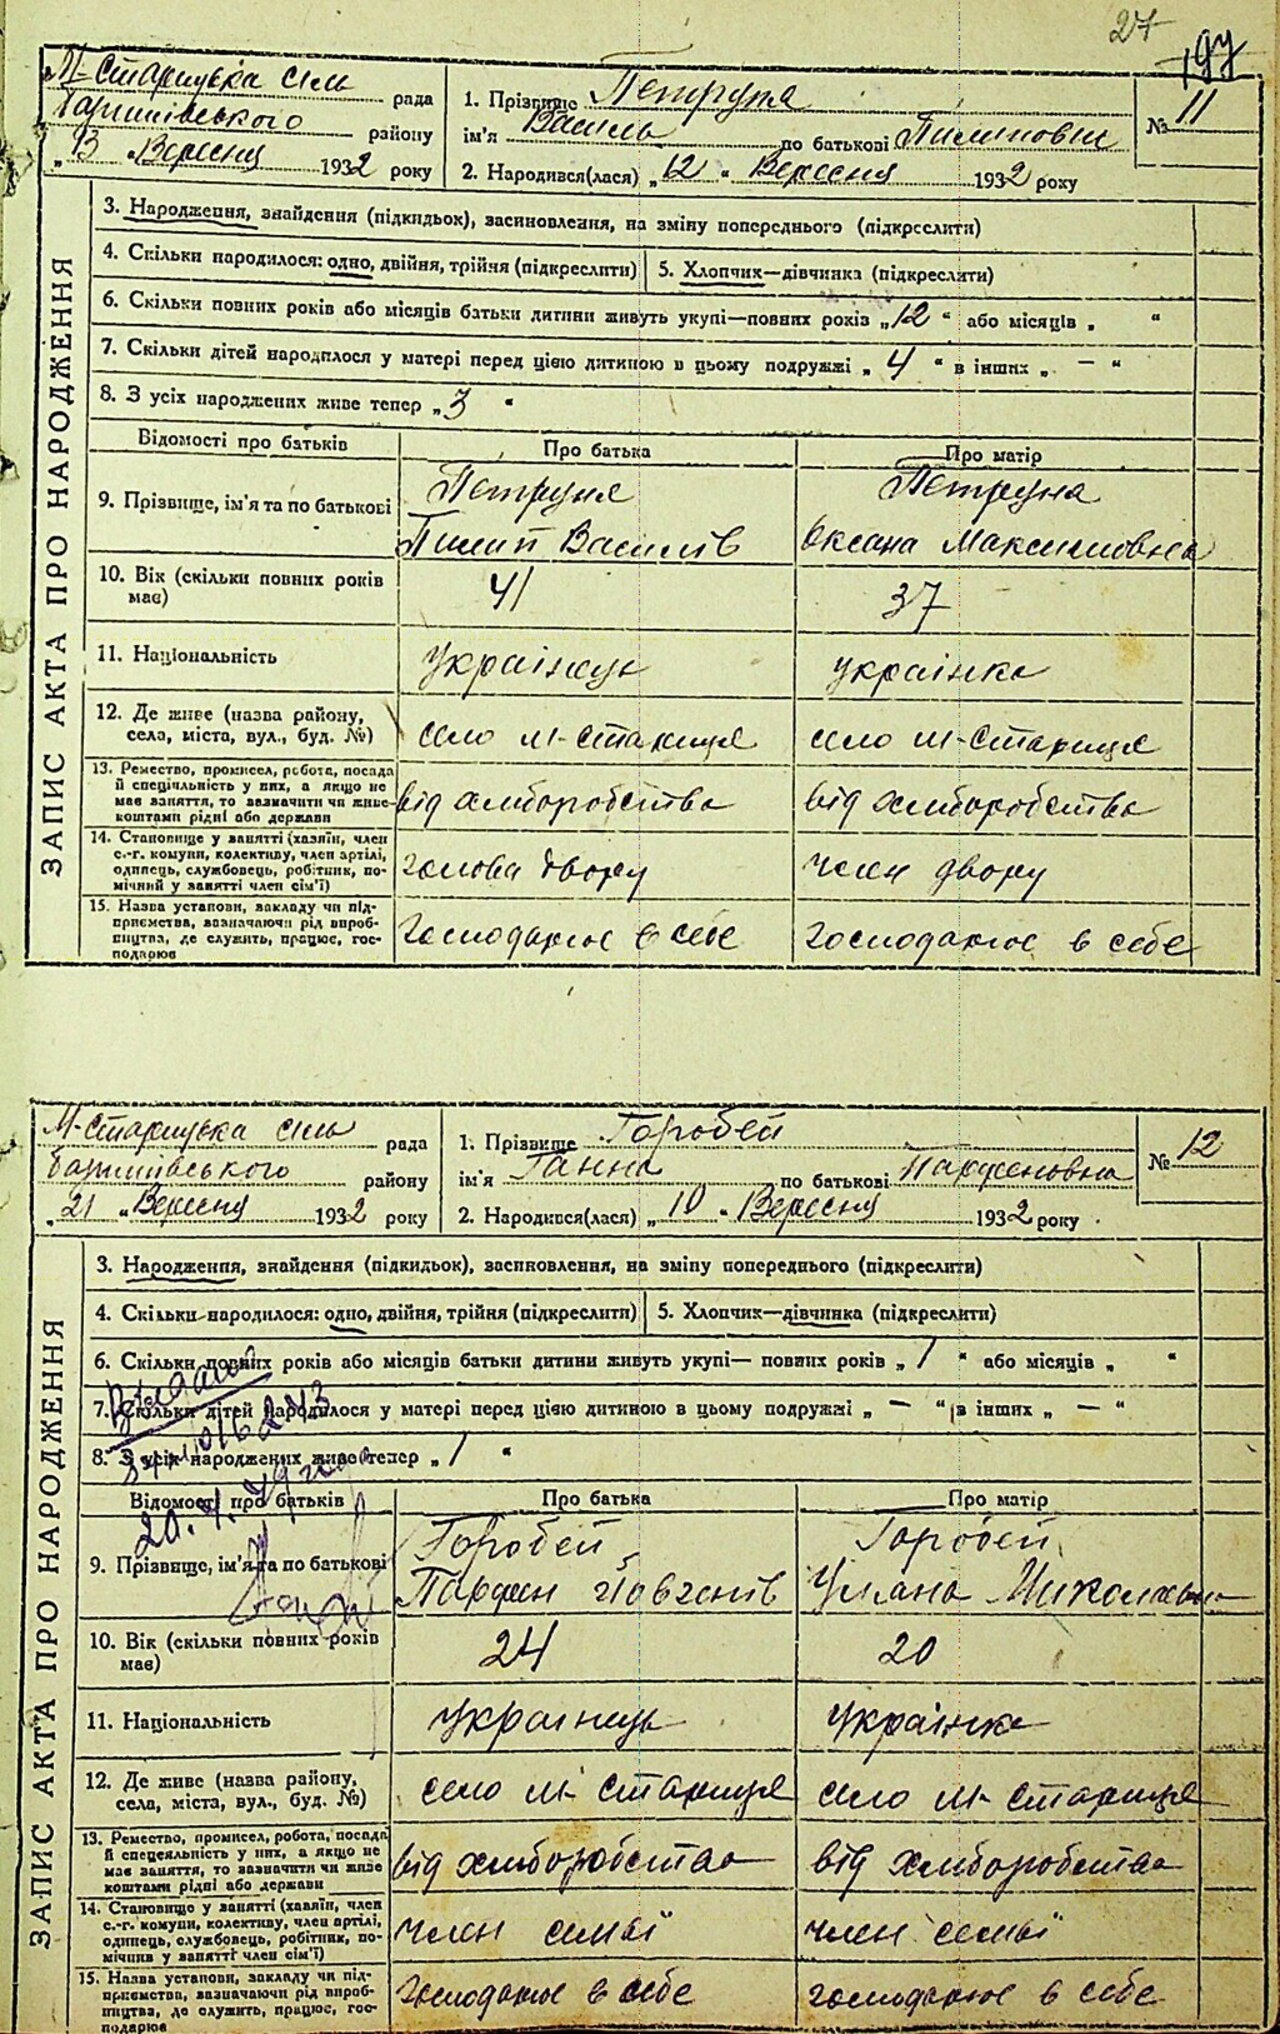 27
197
М-Старицька сіль рада
Баришівського району
„13 „ Вересня 1932 року
1. Прізвище Петруня
ім'я Василь по батькові Пилипович
2. Народився(лася) „12 “ Вересня 1932 року
№ 11
ЗАПИС АКТА ПРО НАРОДЖЕННЯ
3. Народження, знайдення (підкидьок), засиновлення, на зміну попереднього (підкреслити)
4. Скільки народилося: одно, двійня, трійня (підкреслити)
5. Хлопчик—дівчинка (підкреслити)
6. Скільки повних років або місяців батьки дитини живуть укупі—повних років „12 “ або місяців „ “
7. Скільки дітей народилося у матері перед цією дитиною в цьому подружжі „ 4 “ в інших „ — “
8. З усіх народжених живе тепер „3 “
Відомості про батьків
Про батька
Про матір
9. Прізвище, ім'я та по батькові
Петруня
Пилип Василів
Петруна
Оксана Максимовна
10. Вік (скільки повних років
має)
41
37
11. Національність
українець
українка
12. Де живе (назва району,
села, міста, вул., буд. №)
село М-Стариця
село М-Стариця
13. Ремество, промисел, робота, посада
й спеціяльність у них, а якщо не
має заняття, то зазначити чи живе
коштами рідні або держави
від хліборобства
від хліборобства
14. Становище у занятті (хазяїн, член
с.-г. комуни, колективу, член артілі,
одинець, службовець, робітник, по-
мічний у занятті член сім'ї)
голова двору
член двору
15. Назва установи, закладу чи під-
приємства, вазначаючи рід вироб-
ництва, де служить, працює, гос-
подарює
господарює в себе
господарює в себе
М-Старицька сіль рада
Баришівського району
„21 „ Вересня 1932 року
1. Прізвище Горобей
ім'я Ганна по батькові Парфеновна
2. Народився(лася) „ 10 “ Вересня 1932 року
№ 12
ЗАПИС АКТА ПРО НАРОДЖЕННЯ
3. Народження, знайдення (підкидьок), засиновлення, на зміну попереднього (підкреслити)
4. Скільки народилося: одно, двійня, трійня (підкреслити)
5. Хлопчик—дівчинка (підкреслити)
6. Скільки повних років або місяців батьки дитини живуть укупі— повних років „ 1 “ або місяців „ “
7. Скільки дітей народилося у матері перед цією дитиною в цьому подружжі „ — “ в інших „ — “
8. З усіх народжених живе тепер „ 1 “
Відомості про батьків
Про батька
Про матір
9. Прізвище, ім'я та по батькові
Горобей
Парфен
Горобей
Уляна
10. Вік (скільки повних років
має)
24
20
11. Національність
українець
українка
12. Де живе (назва району,
села, міста, вул., буд. №)
село М- Стариця
село М- Стариця
13. Ремество, промисел, робота, посада
й спецеяльність у них, а якщо не
має заняття, то зазначити чи живе
коштами рідні або держави
від хліборобства
від хліборобства
14. Становище у занятті (хазяїн, член
с.-г. комуни, колективу, член артілі,
одинець, службовець, робітник, по-
мічник у занятті член сім'ї)
член семьї
член семьї
15. Назва установи, закладу чи під-
приємства, вазначаючи рід вироб-
ництва, де служить, працює, гос-
подарює
господарює в себе
господарює в себе